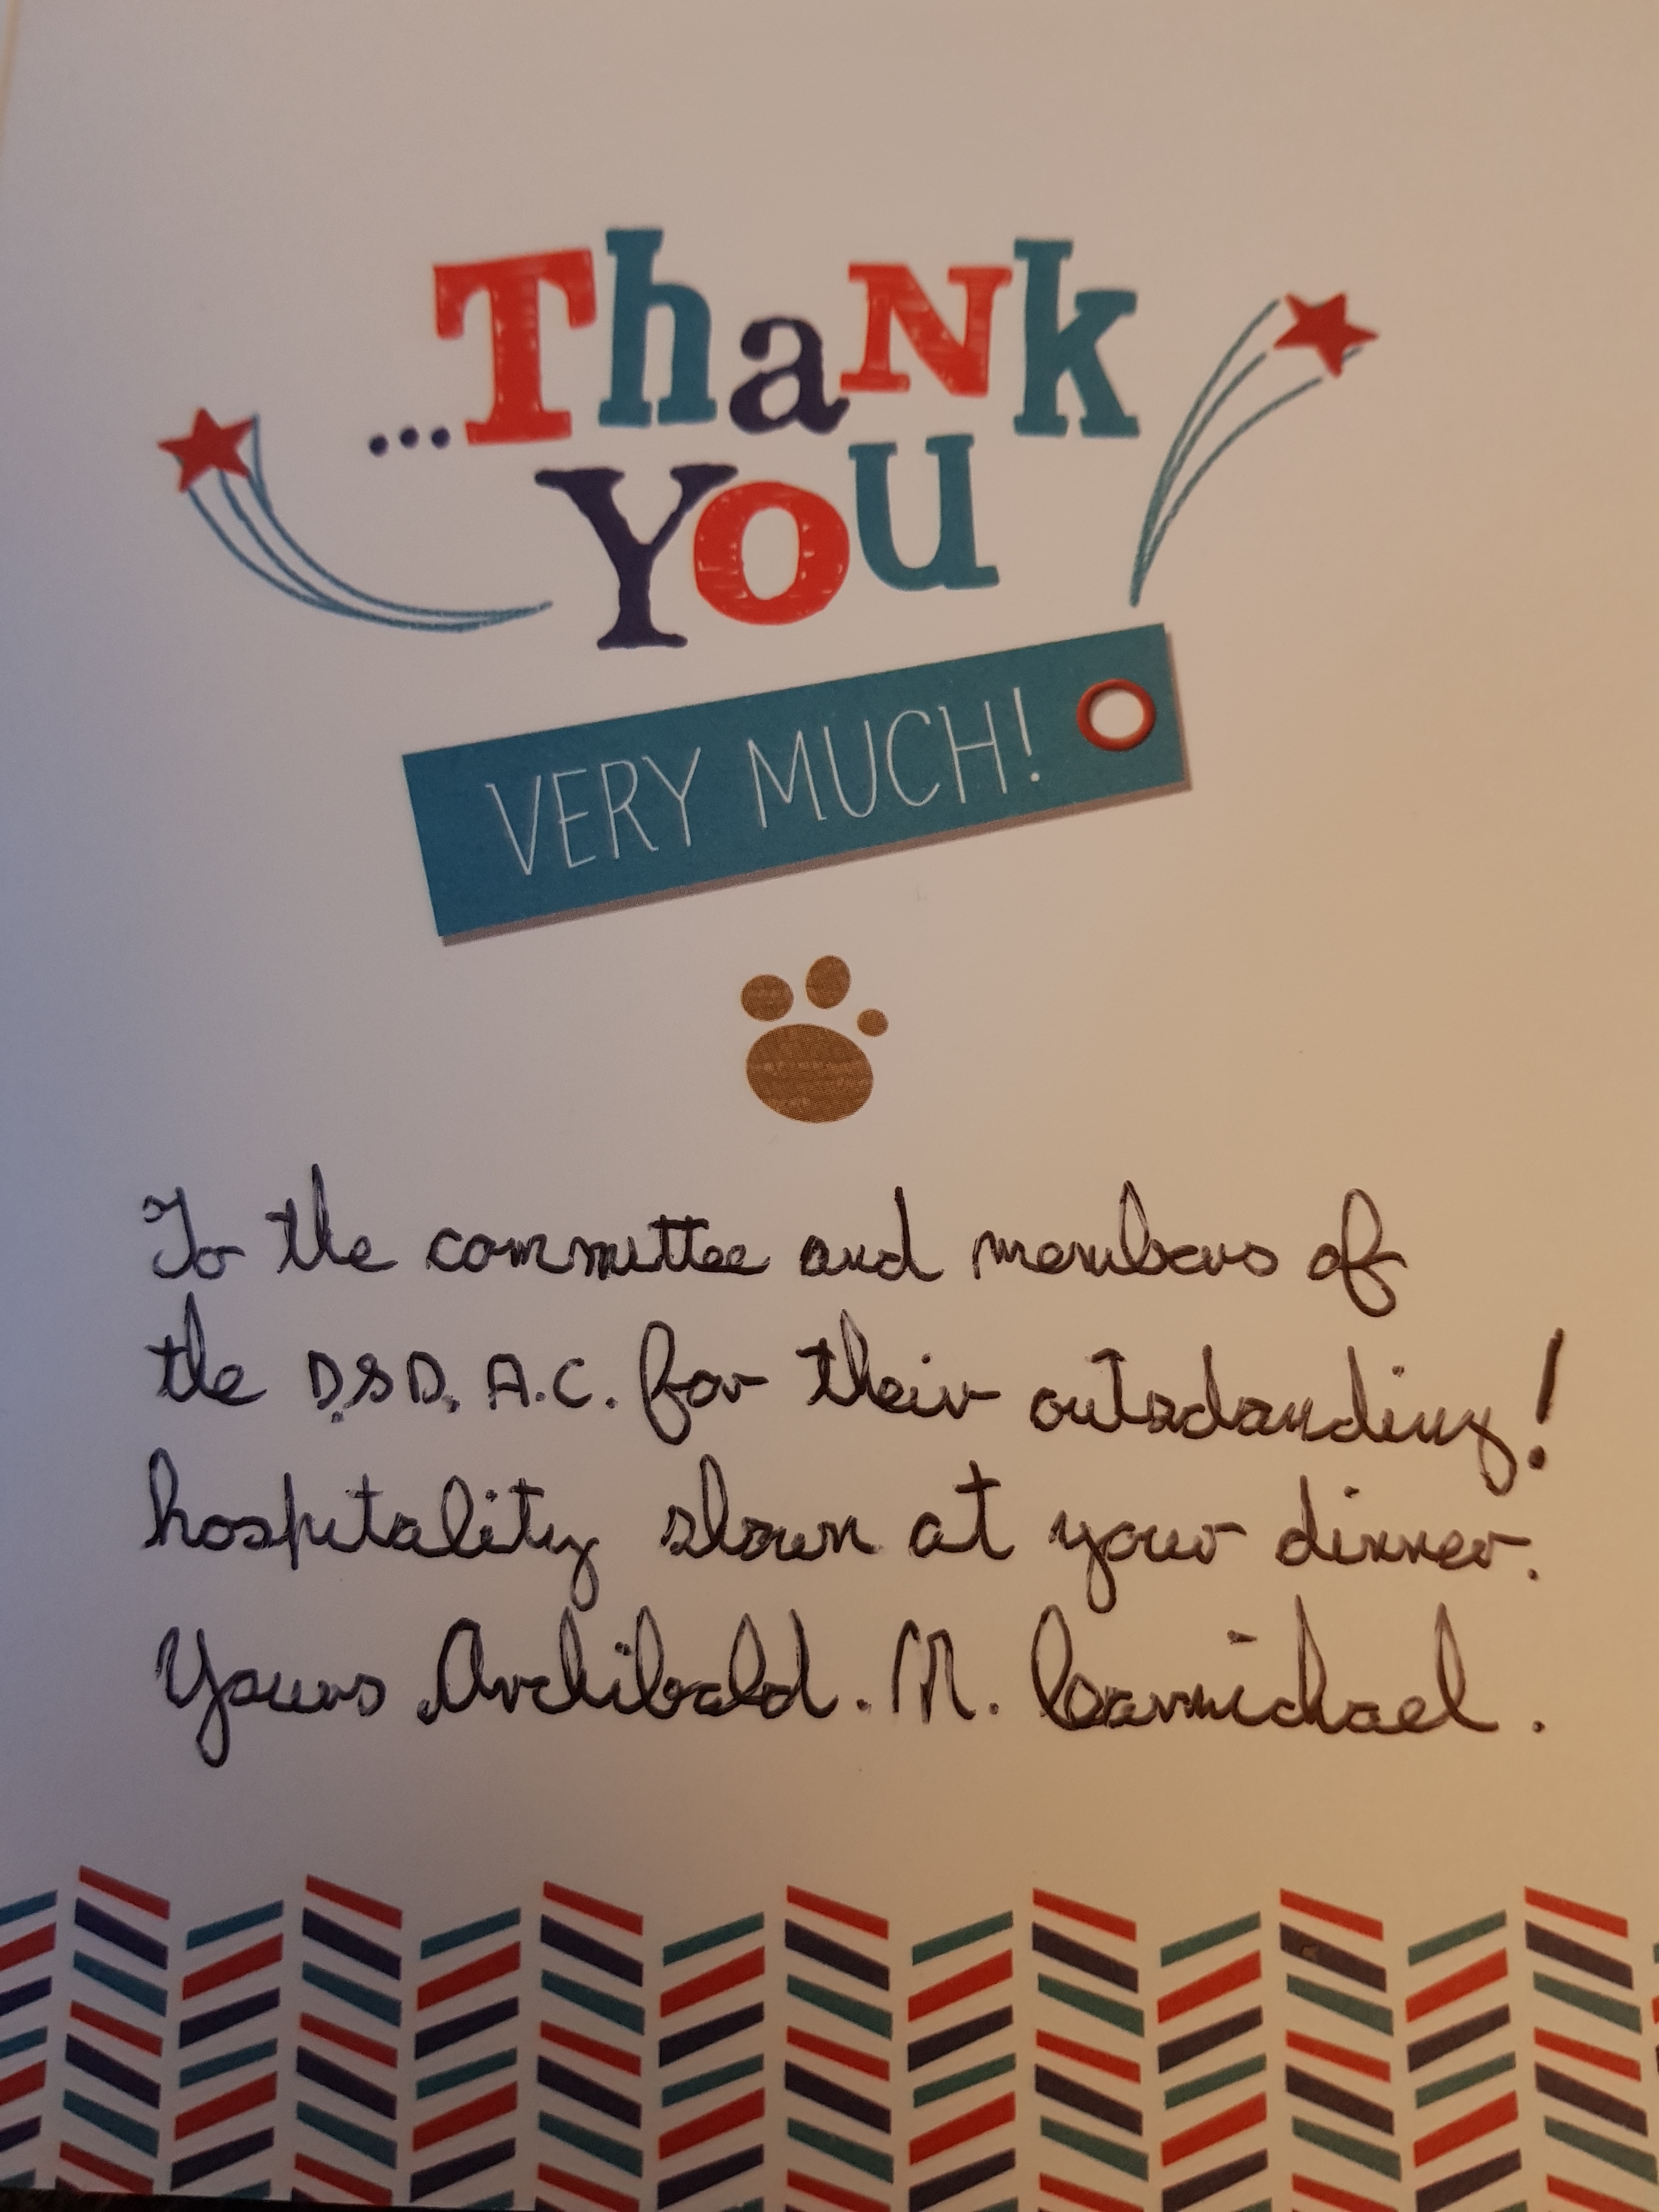 ...Thank
You
VERY MUCH!
To the committee and members of
the D.S.D. A.C. for their outsdanding!
hospitality shown at your dinner.
Yours Archibald. M. Carmichael.